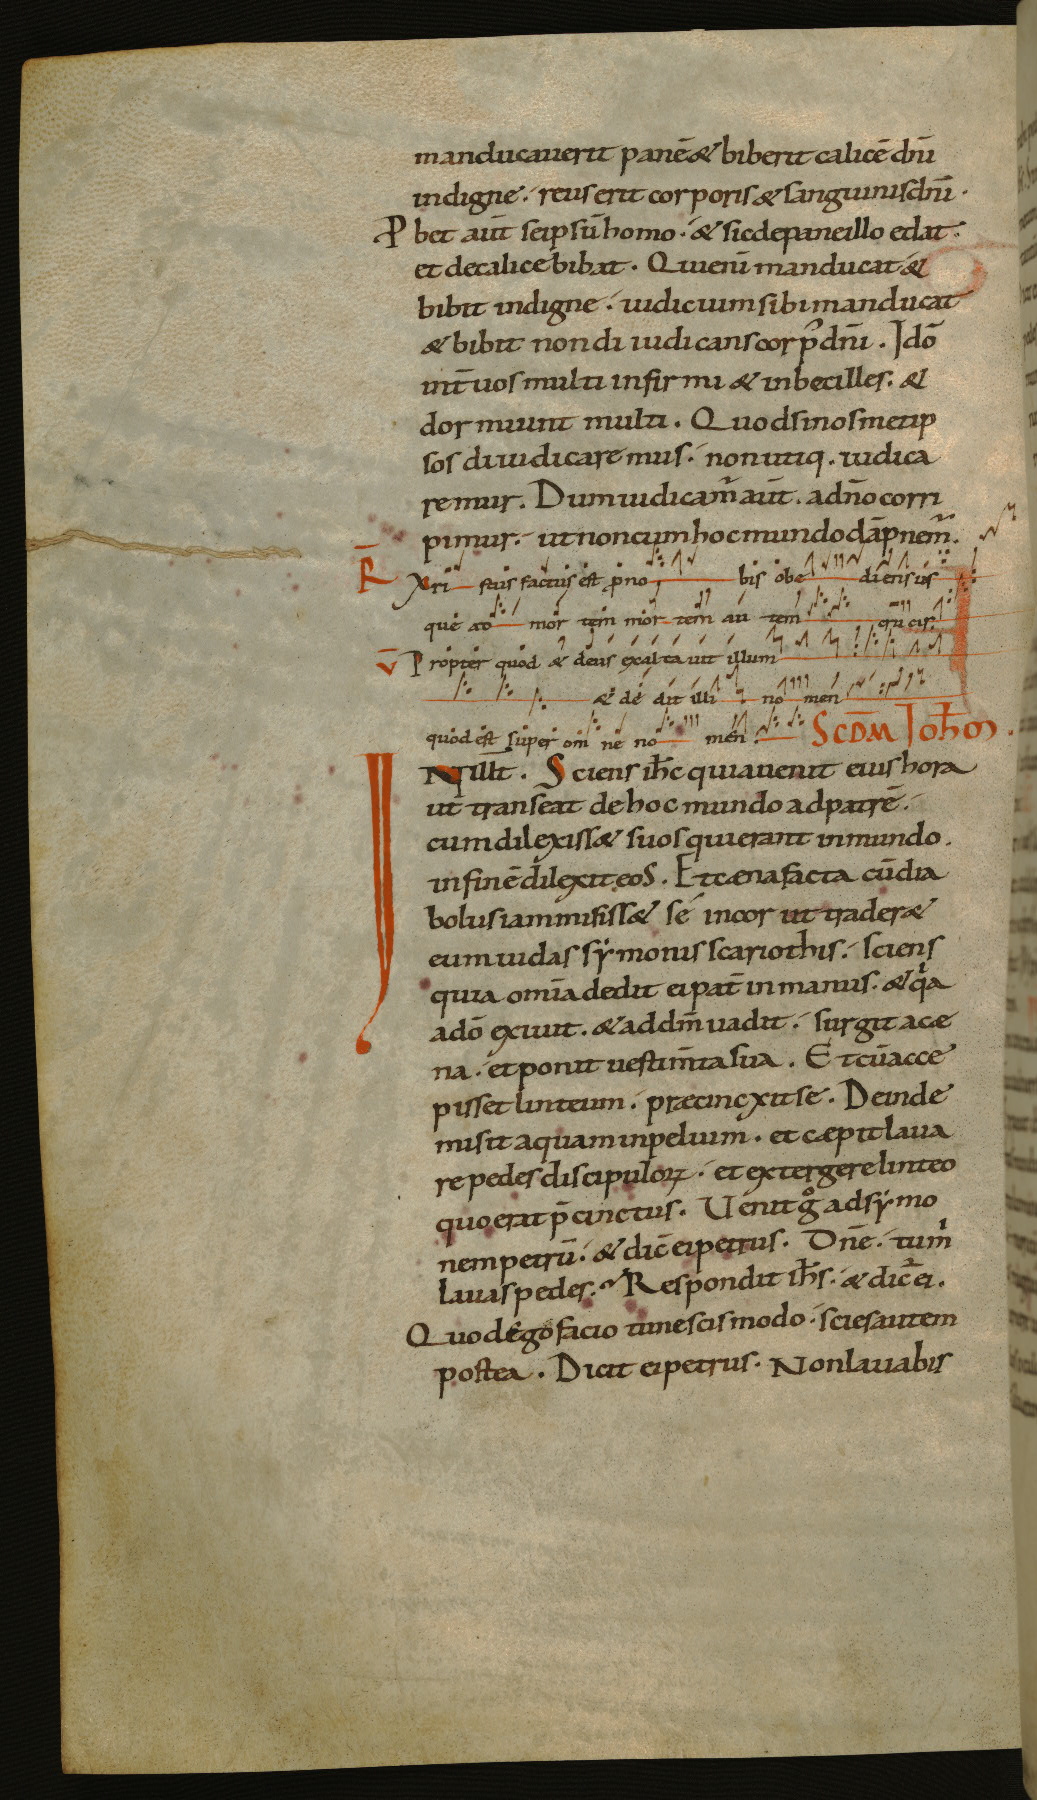 manducauerit panē & biberit calicē dn̄i
indigne · reus erit corporis & sanguinis dn̄i ·
P bet aut̄ seipsū homo · & sic de pane illo edat ·
et de calice bibat · Qui enī manducat &
bibit indigne · iudicium sibi manducat
& bibit non diiudicans corp̄ dn̄i · Idō
int̄ uos multi infirmi & inbecilles · &
dormiunt multi · Quod si nosmetip
sos diiudicaremus · non utiq· iudica
remur · Dum iudicam̄ aut̄ · a dn̄o corri
pimur · ut non cum hoc mundo dāpnem̄ ·
R̄ Xpi stus factus est p̄ no bis obe diens us
que ad mor tem mor tem au tem cru cis ·
V̄ Propter quod & deus exaltauit illum
& de dit illi no men
quod est super om ne no men · SCDM Ioh̄m ·
IN ill̄t · Sciens ih̄c quia uenit eius hora
ut transeat de hoc mundo ad patrē ·
cum dilexiss& suos qui erant in mundo ·
in finē dilexit eos · Et caena facta cū dia
bolus iam misiss& se in cor ut trader&
eum iudas symonis scariothis · sciens
quia om̄ia dedit ei pat̄ in manus · & qa
a dō exiuit · & ad dm̄ uadit · surgit a cae
na · et ponit uestim̄ta sua · Et cū acce
pisset linteum · praecinxit se · Deinde
misit aquam in peluim · et caepit laua
re pedes discipuloꝝ · et extergere linteo
quo erat p̄cinctus · Uenit gͦ ad symo
nem petrū · & dic̄ ei petrus · Dn̄e · tu m̄
lauas pedes · Respondit ih̄s · & dic̄ ei ·
Quod ego facio tu nescis modo · scies autem
postea · Dicit ei petrus · Non lauabis